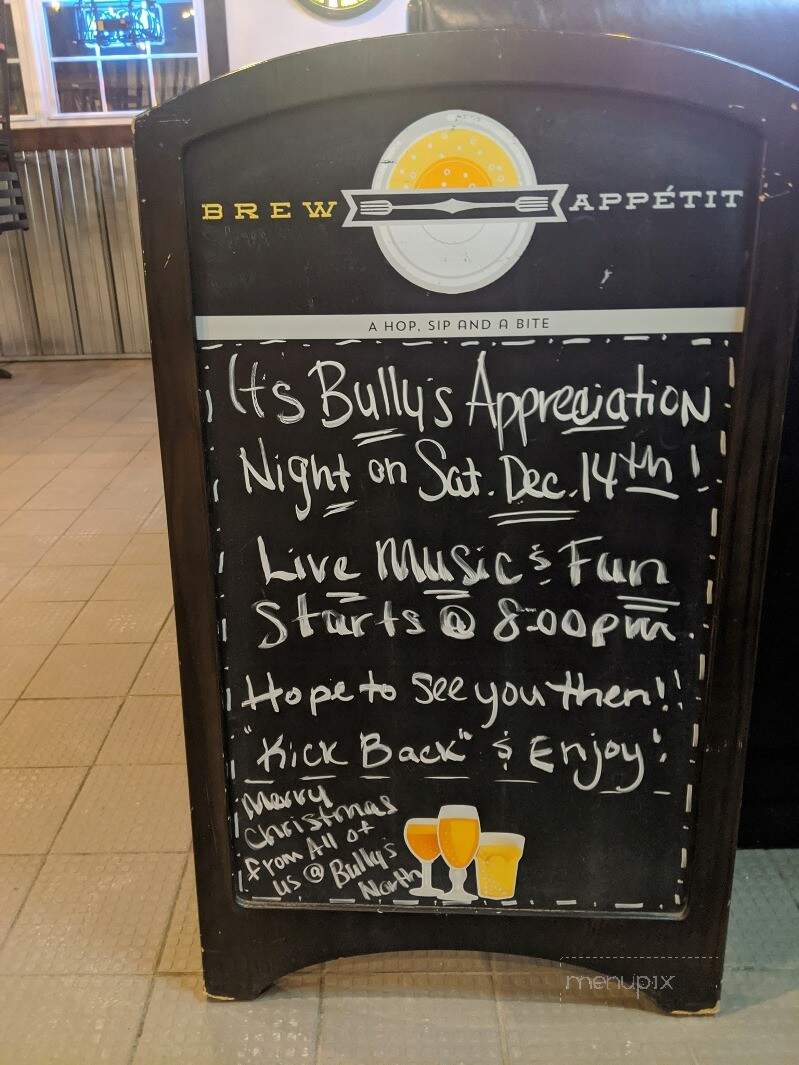 BREW APPÉTIT
A HOP, SIP AND A BITE
It's Bully's Appreciation
Night on Sat. Dec. 14th!
Live Music & Fun
Starts @ 8:00pm.
Hope to see you then!!
"Kick Back" & Enjoy!
Merry
Christmas
from All of
us @ Bully's
North
menupix